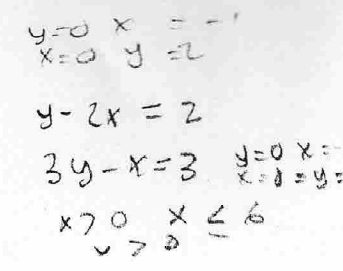 y=0 x = -1
x=0 y =2
y-2x = 2
3y-x=3 y=0 x=-
x>0 x ≤ 6